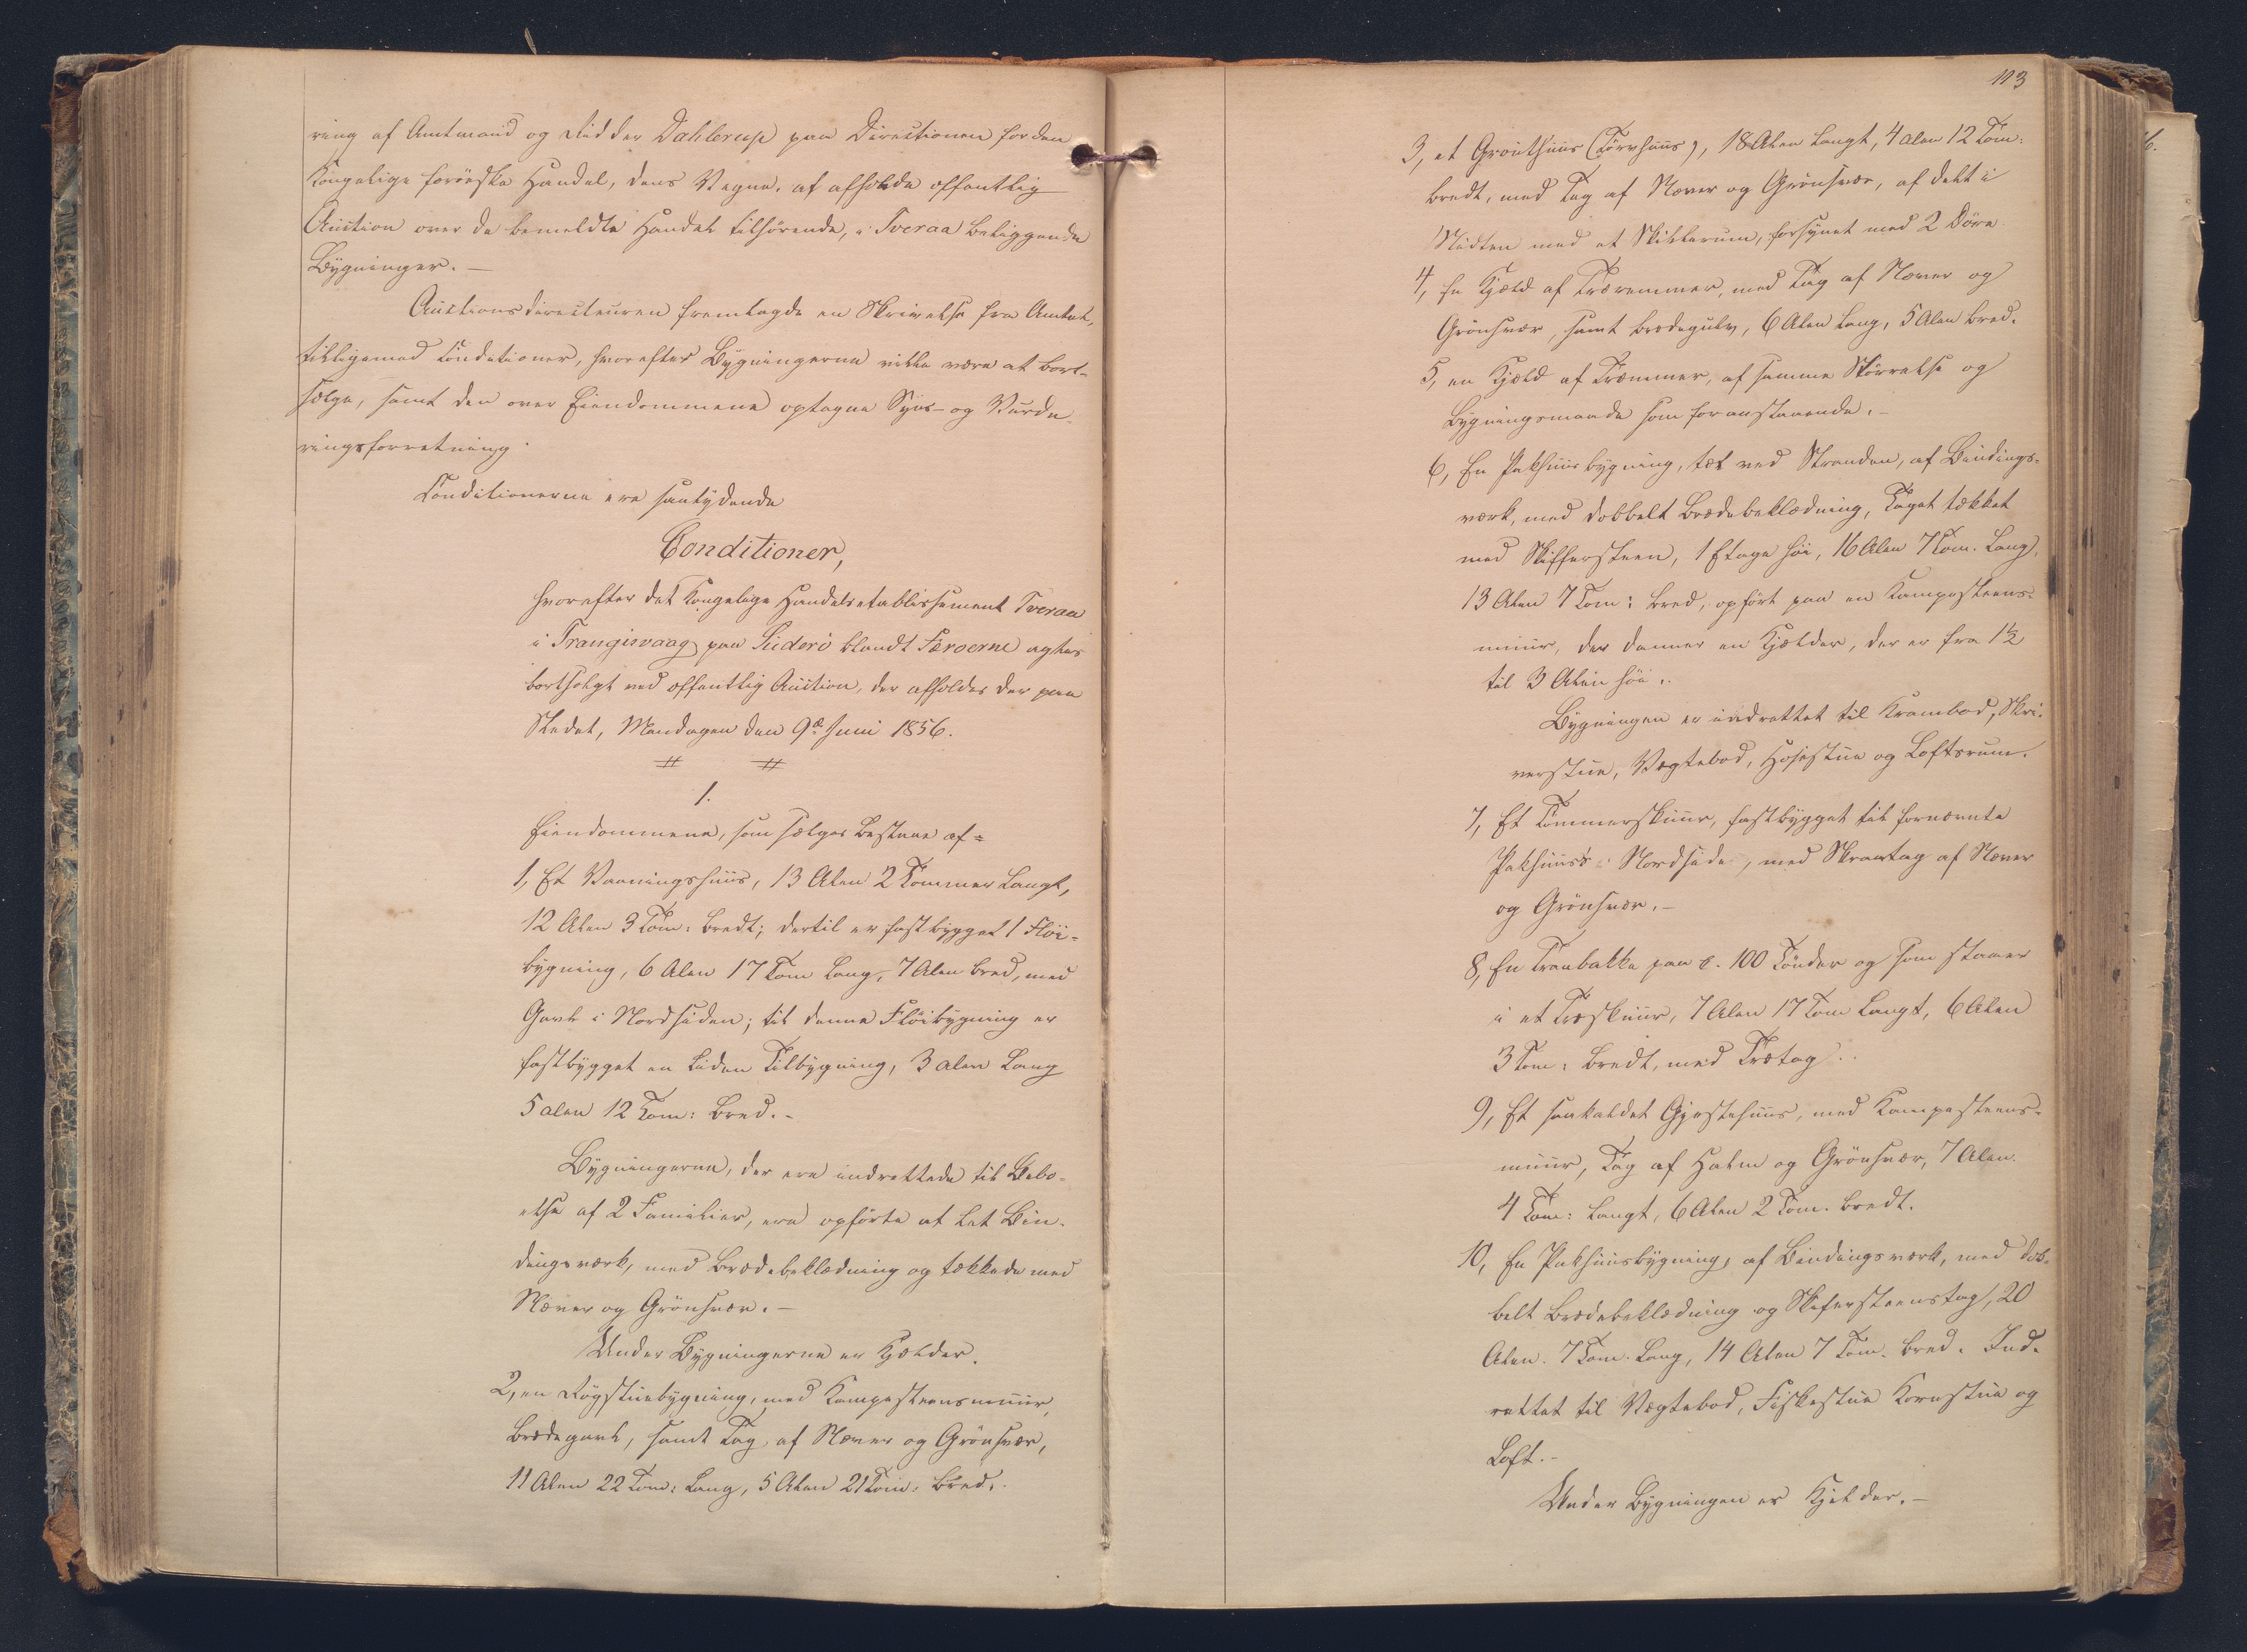 ring af Amtmand og Ridder Dahlerup paa Directionen for den
Kongelige færöeske Handel, dens Vegne, at afholde offentlig
Auction over de bemeldte Handel tilhörende, i Tveraa beliggende
Bygninger. —
Auctionsdirecteuren fremlagde en Skrivelse fra Amtet,
tilligemed Conditioner, hvorefter Bygningerne ville være at bort-
sælge, samt den over Eiendommene optagne Syns- og Vurde-
ringsforretning.
Conditionerne ere saalydende
Conditioner,
hvorefter det Kongelige Handelsetablissement Tveraa
i Trangisvaag paa Suderö blandt Færoerne agtes
bortsolgt ved offentlig Auction, der afholdes der paa
Stedet, Mandagen den 9de Juni 1856.
1.
Eiendommene, som sælges bestaae af =
1, Et Vaaningshuus, 13 Alen 2 Tommer langt,
12 Alen 3 Tom: bredt; dertil er fastbygget 1 Flöi-
bygning, 6 Alen 17 Tom lang, 7 Alen bred, med
Gavl i Nordsiden; til denne Flöibygning er
fastbygget en liden Tilbygning, 3 alen lang
5 alen 12 Tom: bred. -
Bygningerne, der ere indrettede til Bebo-
else af 2 Familier, ere opförte af let Bin-
dingsværk, med Brædebeklædning og tækkede med
Næver og Grönsvær. —
Under Bygningerne er Kjelder.
2, en Rögstuebygning, med Kampesteensmuur,
Brædegavl, samt Tag af Næver og Grönsvær,
11 Alen 22 Tom: lang, 5 Alen 21 Tom: bred.
113
3, et Grouthuus (Törvhuus), 18 Alen langt, 4 alen 12 Tom:
bredt, med Tag af Næver og Grönsvær, af delt i
Midten med et Skillerum, forsynet med 2 Döre
4, En Hjæld af Træremmer, med Tag af Næver og
Grönsvær, samt Brædegulv, 6 Alen lang, 5 Alen bred.
5, en Hjæld af Træmmer, af samme Störrelse og
Bygningsmaade som foranstaaende. -
6, En Pakhuusbygning, tæt ved Stranden, af Bindings-
værk, med dobbelt Brædebeklædning, Taget tækket
med Skiffersteen, 1 Etage höi, 16 Alen 7 Tom. lang,
13 Alen 7 Tom: bred, opfört paa en Kampesteens-
muur, der danner en Kjælder, der er fra 1½
til 3 Alen höi.
Bygningen er indrettet til Krambod, Skri-
verstue, Vægtebod, Hosestue og Loftsrum.
7, Et Tömmerskuur, fastbygget til fornævnte
Pakhuus's Nordside, med Skraatag af Næver
og Grönsvær. -
8, En Tranbakke paa c. 100 Tönder og som staaer
i et Træskuur, 7 Alen 17 Tom langt, 6 Alen
3 Tom: bredt, med Trætag.
9, Et saakaldet Gjestehuus, med Kampesteens-
muur, Tag af Halm og Grönsvær, 7 Alen
4 Tom: langt, 6 Alen 2 Tom. bredt.
10, En Pakhuusbygning af Bindingsværk, med dob-
belt Brædebeklædning og Skifersteenstag, 20
Alen. 7 Tom. lang, 14 Alen 7 Tom. bred. Ind-
rettet til Vægtebod, Fiskestue Kornstue og
Loft. -
Under Bygningen er Kjelder. -